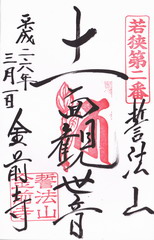 若狭第二番
誓法山
十一面観世音
金前寺
平成二六年
三月一日
誓法山
金前寺